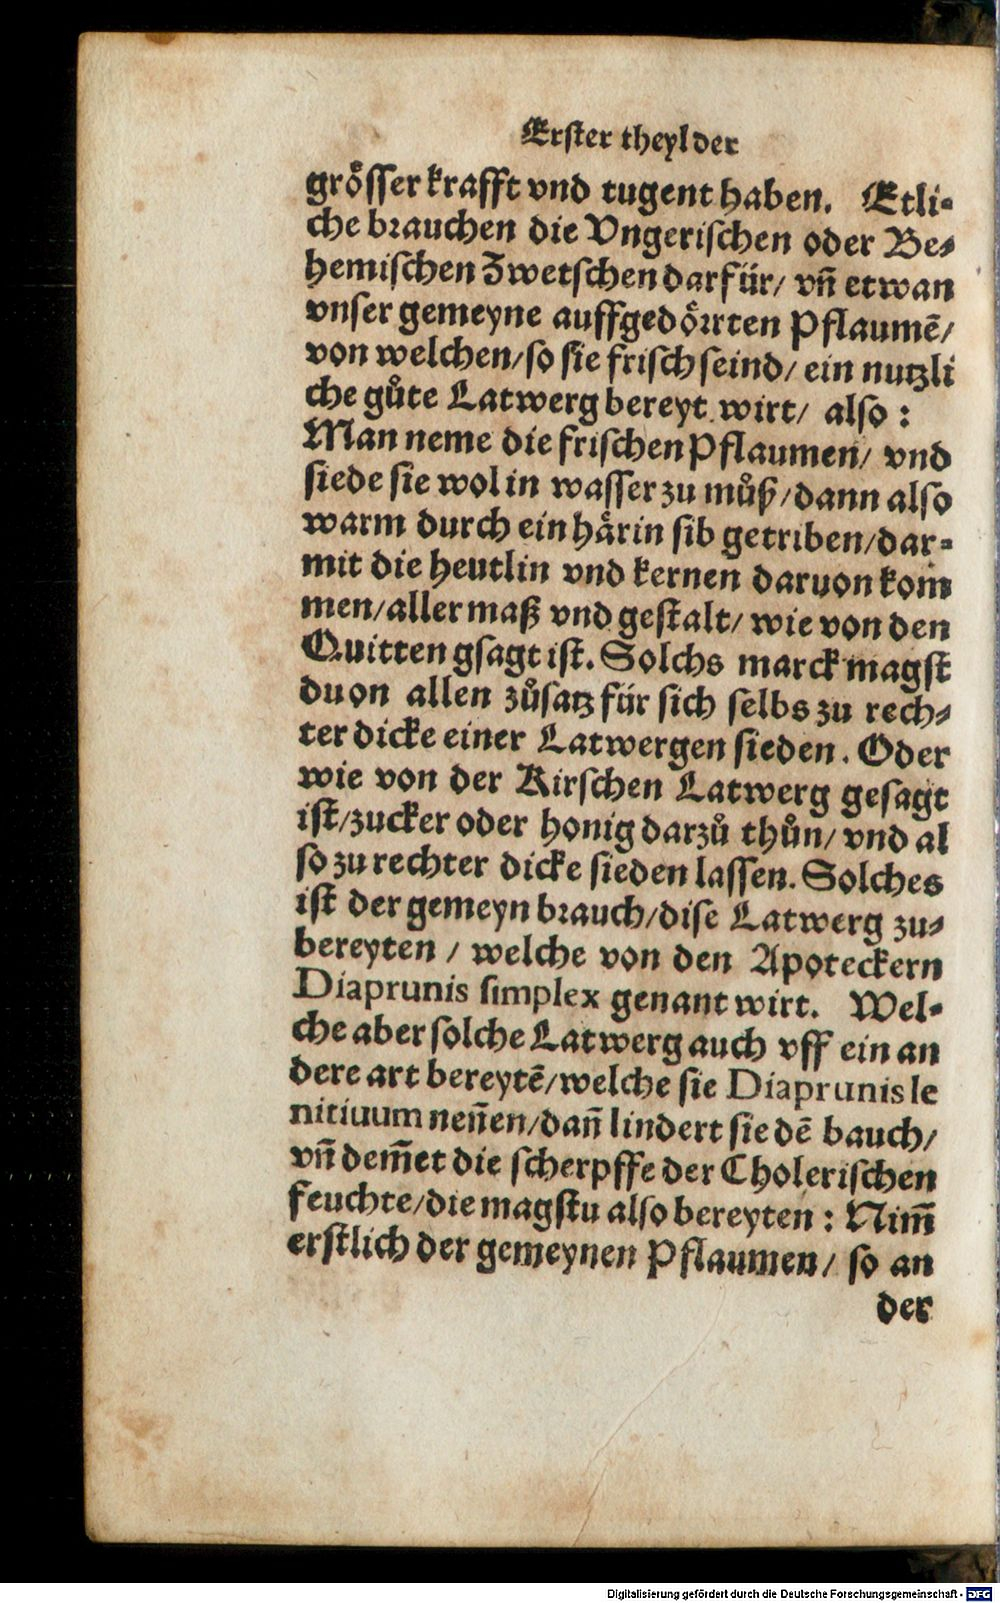 Erster theyl der
grösser krafft vnd tugent haben. Etli-
che brauchen die Vngerischen oder Be-
hemischen Zwetschen darfür/ vñ etwan
vnser gemeyne auffgedörrten Pflaumẽ/
von welchen/so sie frisch seind/ ein nutzli
che gůte Latwerg bereyt wirt/ also :
Man neme die frischen Pflaumen/ vnd
siede sie wol in wasser zu můß/dann also
warm durch ein härin sib getriben/dar-
mit die heutlin vnd kernen daruon kom
men/aller maß vnd gestalt/ wie von den
Quitten gsagt ist. Solchs marck magst
du on allen zůsatz für sich selbs zu rech-
ter dicke einer Latwergen sieden. Oder
wie von der Kirschen Latwerg gesagt
ist/zucker oder honig darzů thůn/ vnd al
so zu rechter dicke sieden lassen. Solches
ist der gemeyn brauch/dise Latwerg zu-
bereyten / welche von den Apoteckern
Diaprunis simplex genant wirt. Wel-
che aber solche Latwerg auch vff ein an
dere art bereytẽ/welche sie Diaprunis le
nitiuum neñen/dañ lindert sie dẽ bauch/
vñ dem̃et die scherpffe der Cholerischen
feuchte/die magstu also bereyten : Nim̃
erstlich der gemeynen Pflaumen/ so an
der
Digitalisierung gefördert durch die Deutsche Forschungsgemeinschaft - DFG